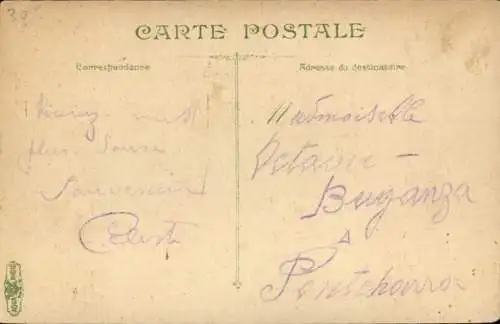 39
CARTE POSTALE
Correspondance
Adresse du destinataire
plus
Souvenir
Céleste
Mademoiselle
Octavie -
Buganza
A
Pontcharra